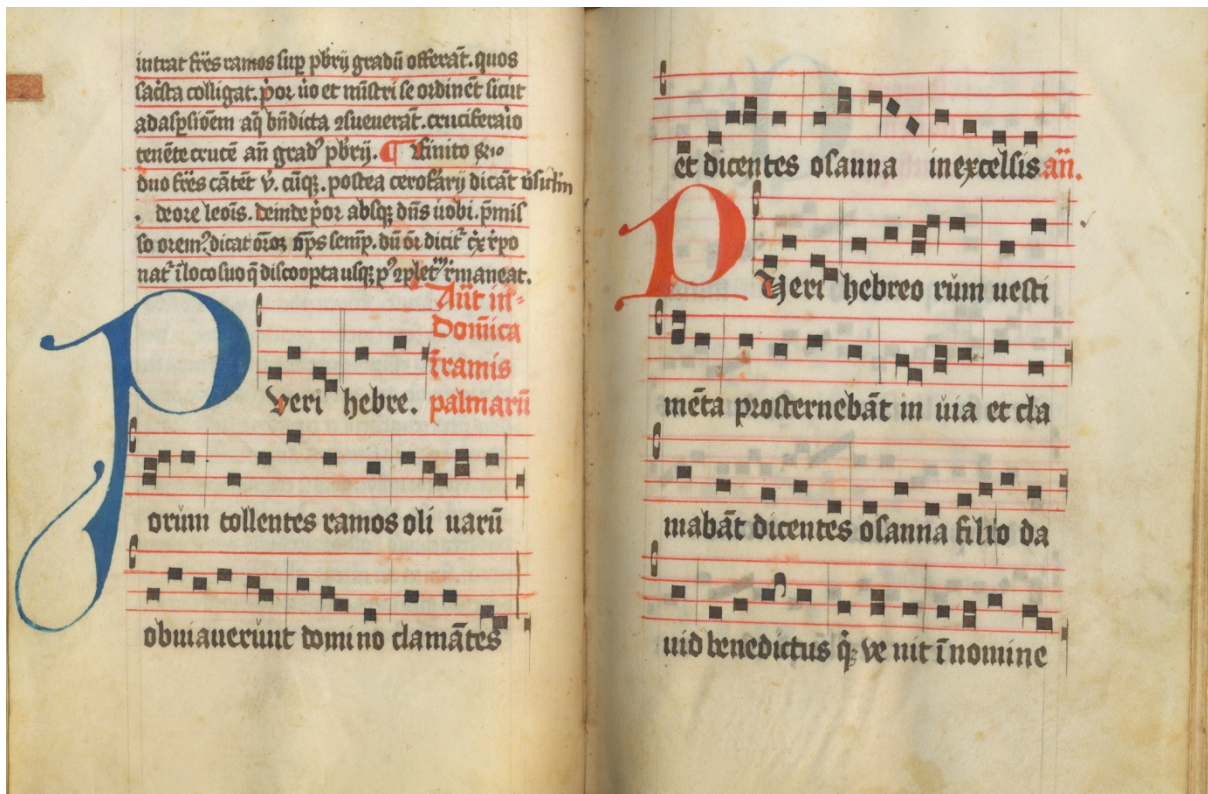 intrat fr̄es ramos sup̱ pb̄rij gradū offerāt. quos
sac̄sta colligat. p̄or ūo et mīstri se ordinēt sicut
ad asp̱sioēm aq̄ bn̄dicta ꝯsueuerāt. cruciferario
tenēte crucē an̄ gradꝰ pb̄rij. ¶ Finito
duo fr̄es cātēt v̄. cūqꝫ. postea cerofarij dicāt
de ore leōis. deinde p̄or absqꝫ dn̄s uobi. p̄mis
so orem. dicat ōroꝫ op̄s semp̱. dū
nat᷑ ī loco suo
Añt in
Domīca
ī ramis
palmarū
Pveri hebre.
orum tollentes ramos oli uarū
obuiauerunt domi no clamātes
et dicentes osanna in excelsis an̄.
Pveri hebreo rum uesti
mēta prosternebāt in uia et cla
mabāt dicentes osanna filio da
uid benedictus q̄ ve nit ī nomine